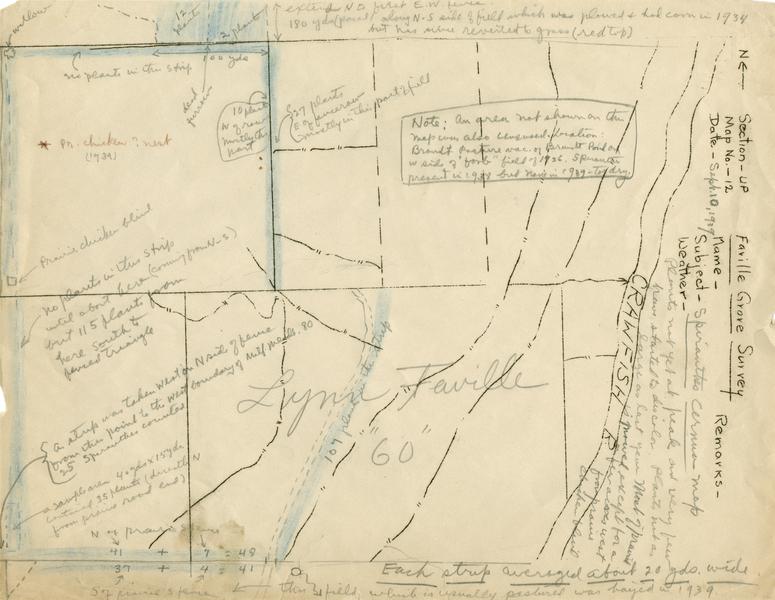 extend N.D. first E.W. fence
180 yds along N-S side of field which was plowed & had corn in 1934
but has since reverted to grass (red top)
willow
12 plants
2 plants
no plants in this strip
100 yds
dead furrow
10 plants
N of row
mostly this
part
27 plants
E of fencerow
mostly in this part of field
* Pr. chicken ? nest
(1939)
Note: An area not shown on this
map was also censused. Location:
Brandt Pasture
W side of "forb" field of 1936. Spiranthes
present in 1938 but none in 1939 - too dry.
Prairie chicken blind
No plants in this strip
until about here (coming from N-S)
but 115 plants from
here south to
fenced triangle
A strip was taken West on N side of fence
from this point to the West boundary of
25 Spiranthes counted
a sample area 40 yds x 15 yds
contained 35 plants (directly N
from prairie road end)
Lynn Faville
"60"
109 plants in this strip
CRAWFISH R
N of prairie fence
41 + 7 = 48
37 + 4 = 41
S of prairie fence
this field, which is usually pastured was hayed in 1939.
Each strip averaged about 20 yds. wide
N
Section - UP
Map No. - 12
Date - Sept. 10, 1939
Faville Grove Survey
Name -
Subject - Spiranthes cernua map
Weather -
Remarks -
Plants not yet at peak and very few
have started to discolor. Plants not as
large as last year. Most of prairie
is mowed except for a
few acres west
from prairie
chicken blind